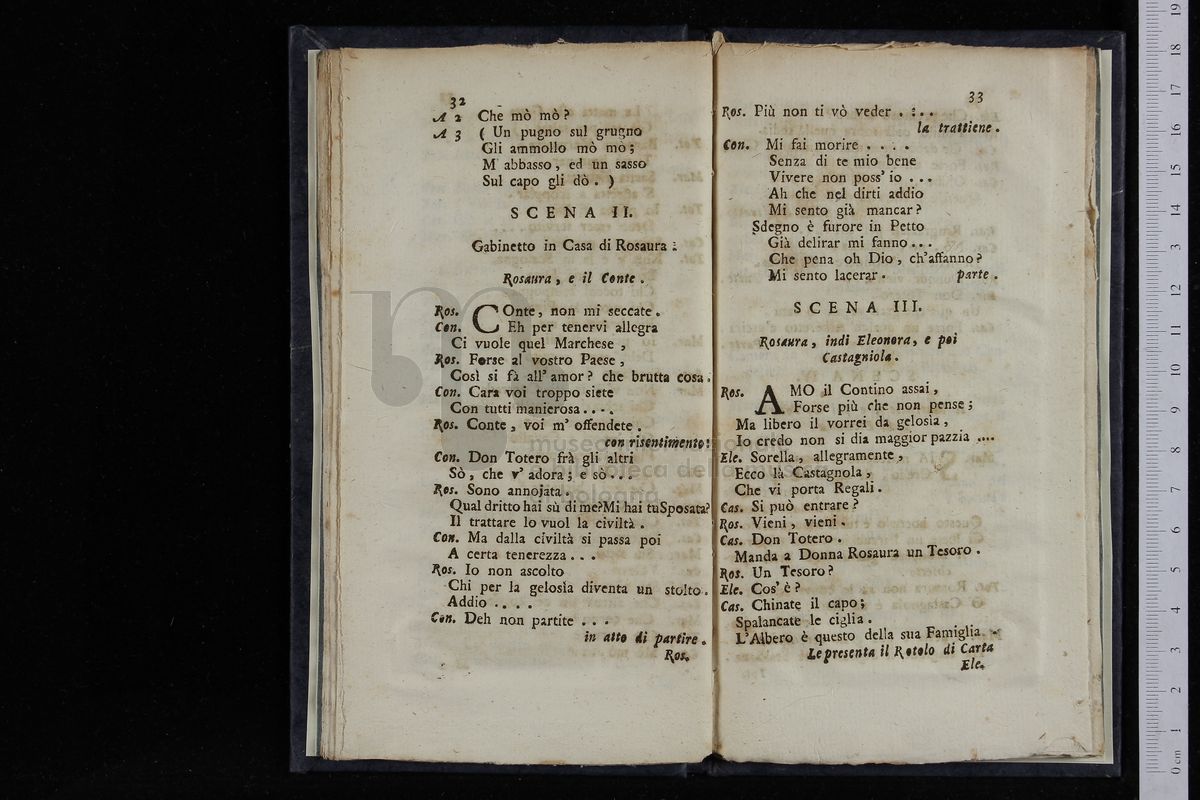 32
A 2 Che mò mò?
A 3 ( Un pugno sul grugno
Gli ammollo mò mò;
M' abbasso, ed un sasso
Sul capo gli dò. )
SCENA II.
Gabinetto in Casa di Rosaura.
Rosaura, e il Conte.
Ros. COnte, non mi seccate.
Con. Eh per tenervi allegra
Ci vuole quel Marchese,
Ros. Forse al vostro Paese,
Così si fà all' amor? che brutta cosa.
Con. Cara voi troppo siete
Con tutti manierosa....
Ros. Conte, voi m' offendete.
con risentimento:
Con. Don Totero frà gli altri
Sò, che v' adora; e sò...
Ros. Sono annojata.
Qual dritto hai sù di me?Mi hai tuSposata?
Il trattare lo vuol la civiltà.
Con. Ma dalla civiltà si passa poi
A certa tenerezza...
Ros. Io non ascolto
Chi per la gelosìa diventa un stolto.
Addio ....
Con. Deh non partite ...
in atto di partire.
Ros.
33
Ros. Più non ti vò veder . :..
la trattiene.
Con. Mi fai morire ....
Senza di te mio bene
Vivere non poss' io ...
Ah che nel dirti addio
Mi sento già mancar?
Sdegno è furore in Petto
Già delirar mi fanno...
Che pena oh Dio, ch'affanno?
Mi sento lacerar. parte.
SCENA III.
Rosaura, indi Eleonora, e poi
Castagniola.
Ros. AMO il Contino assai,
Forse più che non pense;
Ma libero il vorrei da gelosìa,
Io credo non si dia maggior pazzia ....
Ele. Sorella, allegramente,
Ecco là Castagnola,
Che vi porta Regali.
Cas. Si può entrare?
Ros. Vieni, vieni.
Cas. Don Totero.
Manda a Donna Rosaura un Tesoro.
Ros. Un Tesoro?
Ele. Cos' è?
Cas. Chinate il capo;
Spalancate le ciglia.
L'Albero è questo della sua Famiglia.
Le presenta il Rotolo di Carta
Ele.